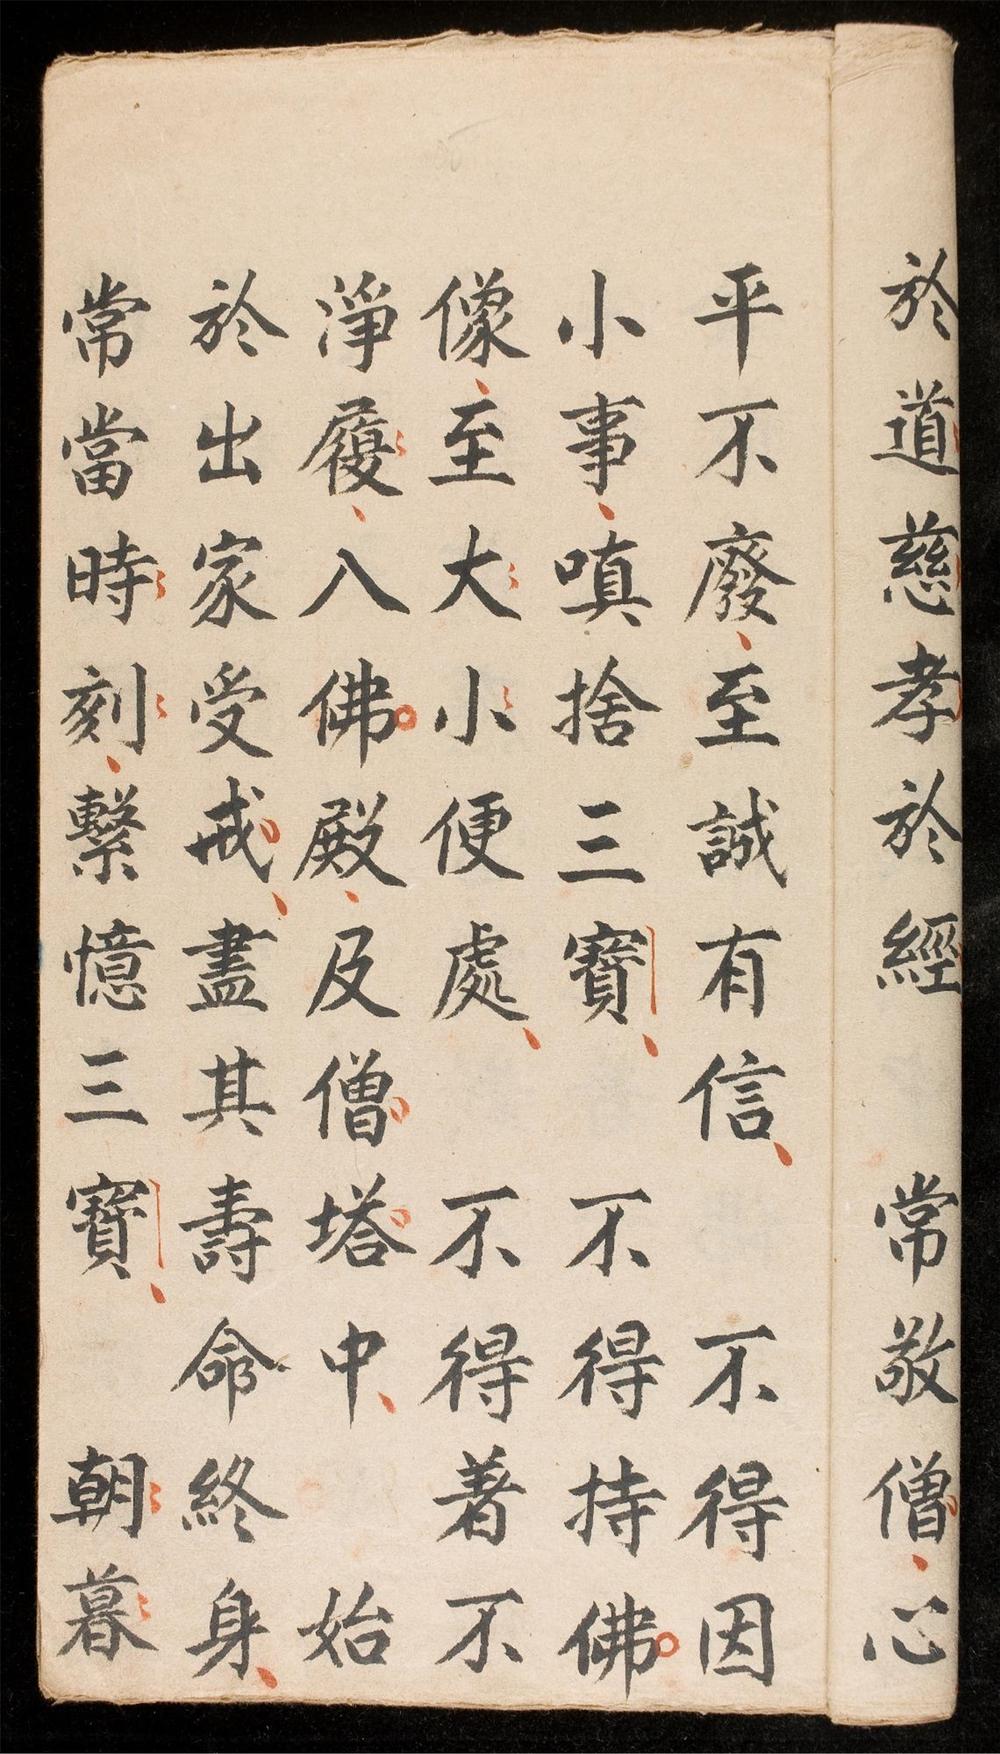 於道慈孝於經　常敬僧心
平不廢至誠有信　不得因
小事嗔捨三寶　不得持佛
像至大小便處　不得著不
淨履入佛殿及僧塔中　始
於出家受戒盡其壽命終身
常當時刻繫憶三寶　朝暮